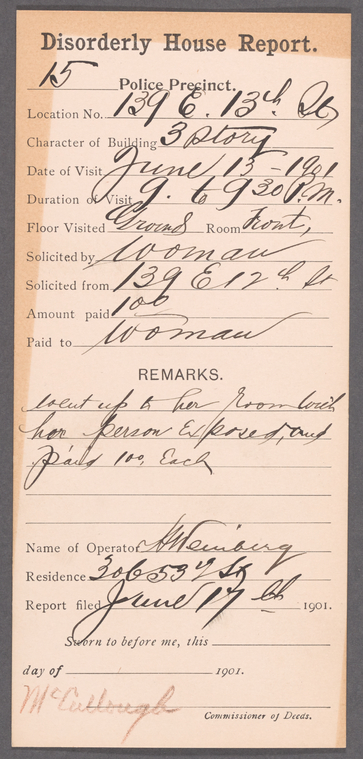 Disorderly House Report.
15 Police Precinct.
Location No. 139 E. 13th St
Character of Building 3 story
Date of Visit June 15-1901
Duration of Visit 9. to 9 30 P.M.
Floor Visited Ground Room Front,
Solicited by Woman
Solicited from 139 E 12th St
Amount paid 1 00
Paid to Woman
REMARKS.
went up to her Room with
her person Exposed, and
paid 1 00, Each
Name of Operator Weinberg
Residence 306 53rd St
Report filed June 17th 1901.
Sworn to before me, this
day of 1901.
McCullough
Commissioner of Deeds.